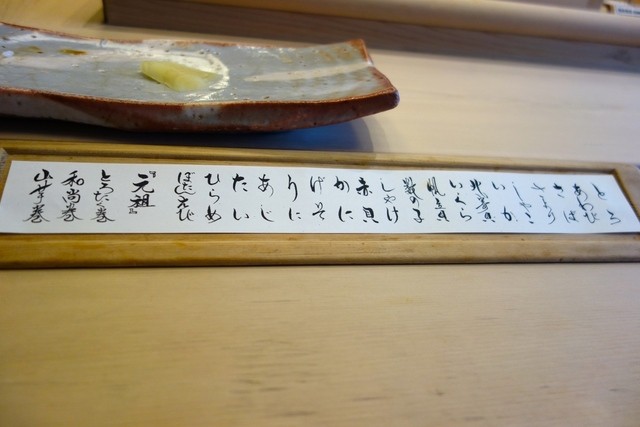 とろ
あわび
さば
さより
しゃこ
いか
北寄貝
いくら
帆立貝
数の子
しゃけ
赤貝
かに
げそ
うに
あじ
たい
ひらめ
ぼたんえび
『元祖』
とろたく巻
和尚巻
山芋巻